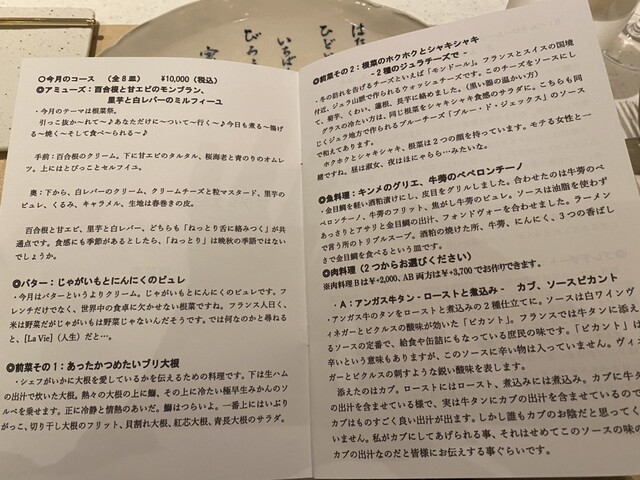 〇今月のコース　(全８皿)　¥10,000（税込）
◎アミューズ：百合根と甘エビのモンブラン、
里芋と白レバーのミルフィーユ
・今月のテーマは根菜祭。
引っこ抜か～れて♪あなただけに～ついて～行く～♪今日も煮る～揚げ
る～焼く～そして食べ～られる～♪
手前：百合根のクリーム。下に甘エビのタルタル、桜海老と青のりのオムレ
ツ。上にはとびっことセルフイユ。
奥：下から、白レバーのクリーム、クリームチーズと粒マスタード、里芋の
ピュレ、くるみ、キャラメル、生地は春巻きの皮。
百合根と甘エビ、里芋と白レバー。どちらも「ねっとり舌に絡みつく」が共
通点です。食感にも季節があるとしたら、「ねっとり」は晩秋の季語ではない
でしょうか。
◎バター：じゃがいもとにんにくのピュレ
・今月はバターというよりクリーム。じゃがいもとにんにくのピュレです。フ
レンチだけでなく、世界中の食卓に欠かせない根菜ですね。フランス人曰く、
米は野菜だがじゃがいもは野菜じゃないんだそうです。では何なのかと尋ねる
と、[La Vie]（人生）だと…。
◎前菜その１：あったかつめたいブリ大根
・シェフがいかに大根を愛しているかを伝えるための料理です。下は生ハム
の出汁で炊いた大根。熱々の大根の上に鰤、その上に冷たい極早生みかんのソ
ルベを乗せます。正に冷静と情熱のあいだ。鰤はつらいよ。一番上にはいぶり
がっこ、切り干し大根のフリット、貝割れ大根、紅芯大根、青長大根のサラダ。
前菜その２：根菜のホクホクとシャキシャキ
-２種のジュラチーズで-
・冬の訪れを告げるチーズといえば「モンドール」。フランスとスイスの国境
付近、ジュラ山脈で作られるウォッシュチーズです。このチーズをソースにし
て、菊芋、くわい、蓮根、長芋に絡めました。（黒い器の温かい方）
グラスの冷たい方は、同じ根菜をシャキシャキ食感のサラダに。こちらも同
じくジュラ地方で作られるブルーチーズ「ブルー・ド・ジェックス」のソース
で和えてあります。
ホクホクとシャキシャキ、根菜は２つの顔を持っています。モテる女性と一
緒ですね。昼は淑女、夜はほにゃらら…みたいな。
◎魚料理：キンメのグリエ、牛蒡のペペロンチーノ
・金目鯛を軽い酒粕漬けにし、皮目をグリルしました。合わせたのは牛蒡のペ
ペロンチーノ、牛蒡のフリット、焦がし牛蒡のピュレ。ソースは油脂を使わず
あっさりとアサリと金目鯛の出汁、フォンドヴォーを合わせました。ラーメン
で言う所のトリプルスープ。酒粕の焼けた所、牛蒡、にんにく、３つの香ばし
さで金目鯛を食べるという皿です。
◎肉料理（２つからお選びください）
※肉料理Ｂは¥+2,000、AB両方は¥+3,700でお作りできます。
・Ａ：アンガス牛タン-ローストと煮込み-　カブ、ソースピカント
・アンガス牛のタンをローストと煮込みの２種仕立てに。ソースは白ワインヴ
ィネガーとピクルスの酸味が効いた「ピカント」。フランスでは牛タンに添え
るソースの定番で、給食や缶詰にもなっている庶民の味です。「ピカント」は
辛いという意味もありますが、このソースに辛い物は入っていません。ヴィネ
ガーとピクルスの刺すような鋭い酸味を表します。
添えたのはカブ。ローストにはロースト、煮込みには煮込み。カブに牛タ
の出汁を含ませている様で、実は牛タンにカブの出汁を含ませているので
カブはものすごく良い出汁が出ます。しかし誰もカブのお陰だと思ってく
いません。私がカブにしてあげられる事、それはせめてこのソースの味の
カブの出汁なのだと皆様にお伝えする事ぐらいです。